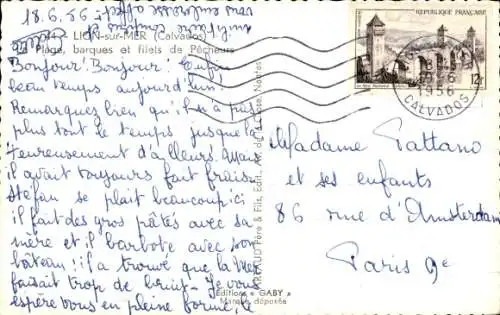 18.6.56
LION-sur-MER (Calvados)
Plage, barques et filets de Pêcheurs
Bonjour! Bonjour! Enfin
beau temps aujourd'hui!
Remarquez bien qu'il n'a pas
plus tout le temps jusque là
heureusement d'ailleurs. Mais
il avait toujours fait frais.
Stefan se plait beaucoup ici
il fait des gros pâtés avec sa
mère et il barbote avec son
bâteau: il a trouvé que la mer
faisait trop de bruit. Je vous
espère vous en pleine forme, le
ARTAUD Père & Fils, Edit., Nantes
Editions « GABY »
Marque déposée
REPUBLIQUE FRANÇAISE
12F
1956
CALVADOS
Madame Pattano
et ses enfants
86 rue d'Amsterdam
Paris 9e